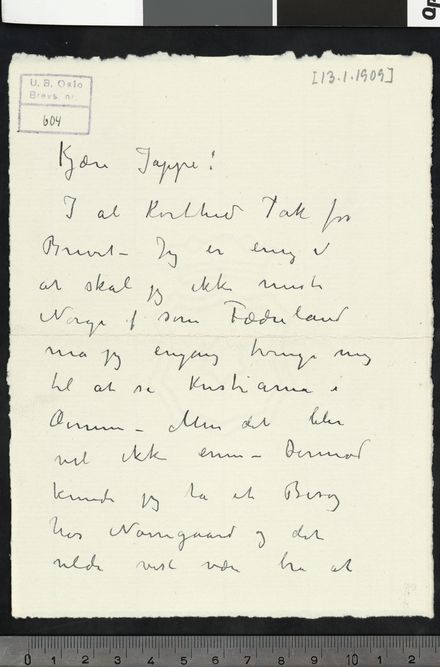 [13.1.1909]
U. B. Oslo
Brevs. nr.
604
Kjære Jappe!
I al Korthed Tak for
Brevet – Jeg er enig i
at skal jeg ikke miste
Norge som Fædreland
må jeg engang tvinge mig
til at se Kristiania i
Øinene – Men det blir
vel ikke ennu – Derimod
kunde jeg ta et Besøg
hos Nørregaard og det
vilde vist være bra at